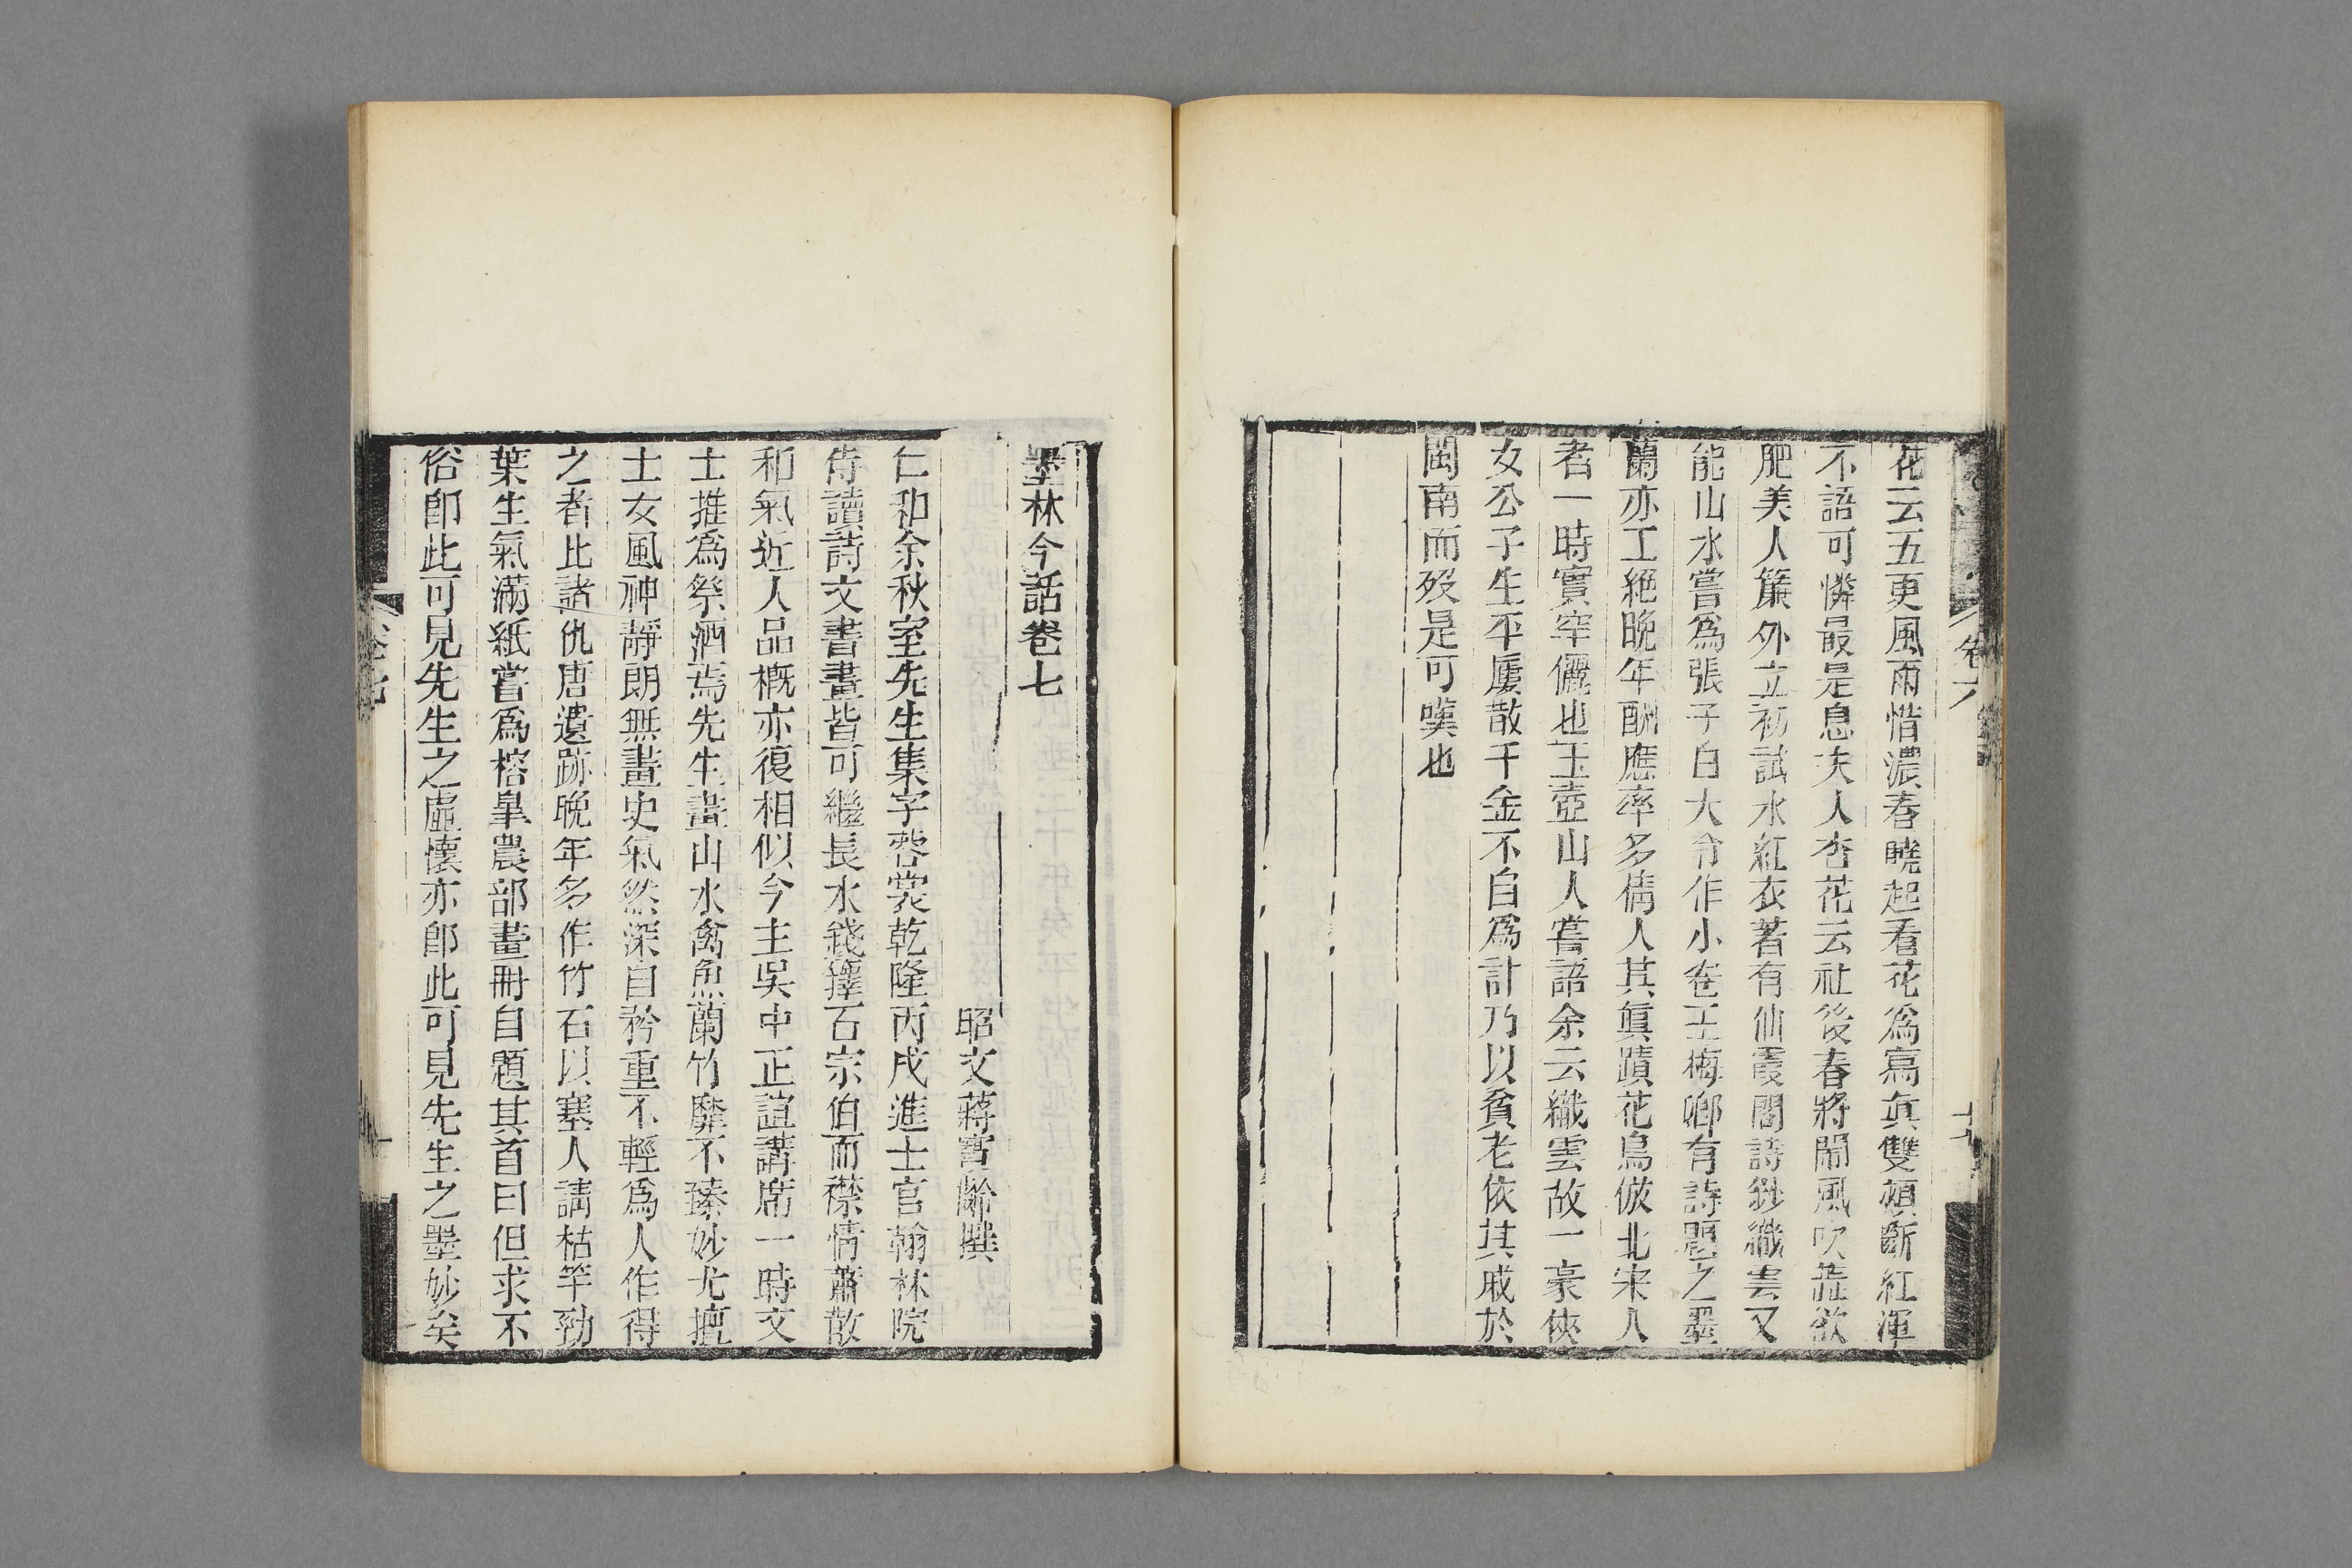 花云五更風雨惜濃春曉起看花爲寫眞雙頰斷紅渾
不語可憐最是息夫人杏花云社後春將鬧風吹蘂欲
肥美人簾外立初試水紅衣著有仙霞閣詩鈔織雲又
能山水嘗爲張子白大令作小卷王梅鄉有詩題之墨
蘭亦工絕晚年酬應率多倩人其眞蹟花鳥倣北宋人
者一時實罕儷也玉壺山人嘗語余云織雲故一豪俠
女公子生平屢散千金不自爲計乃以貧老依其戚於
閩南而歿是可嘆也
卷六
墨林今話卷七
昭文蔣寶齡撰
仁和余秋室先生集字蓉裳乾隆丙戌進士官翰林院
侍讀詩文書畫皆可繼長水錢籜石宗伯而襟情蕭散
和氣近人品槪亦復相似今主吳中正誼講席一時文
士推爲祭酒焉先生畫山水禽魚蘭竹靡不臻妙尤擅
士女風神靜朗無畫史氣然深自矜重不輕爲人作得
之者比諸仇唐遺跡晚年多作竹石以塞人請枯竿勁
葉生氣滿紙嘗爲榕皐農部畫冊自題其首曰但求不
俗卽此可見先生之虛懷亦卽此可見先生之墨妙矣
卷七